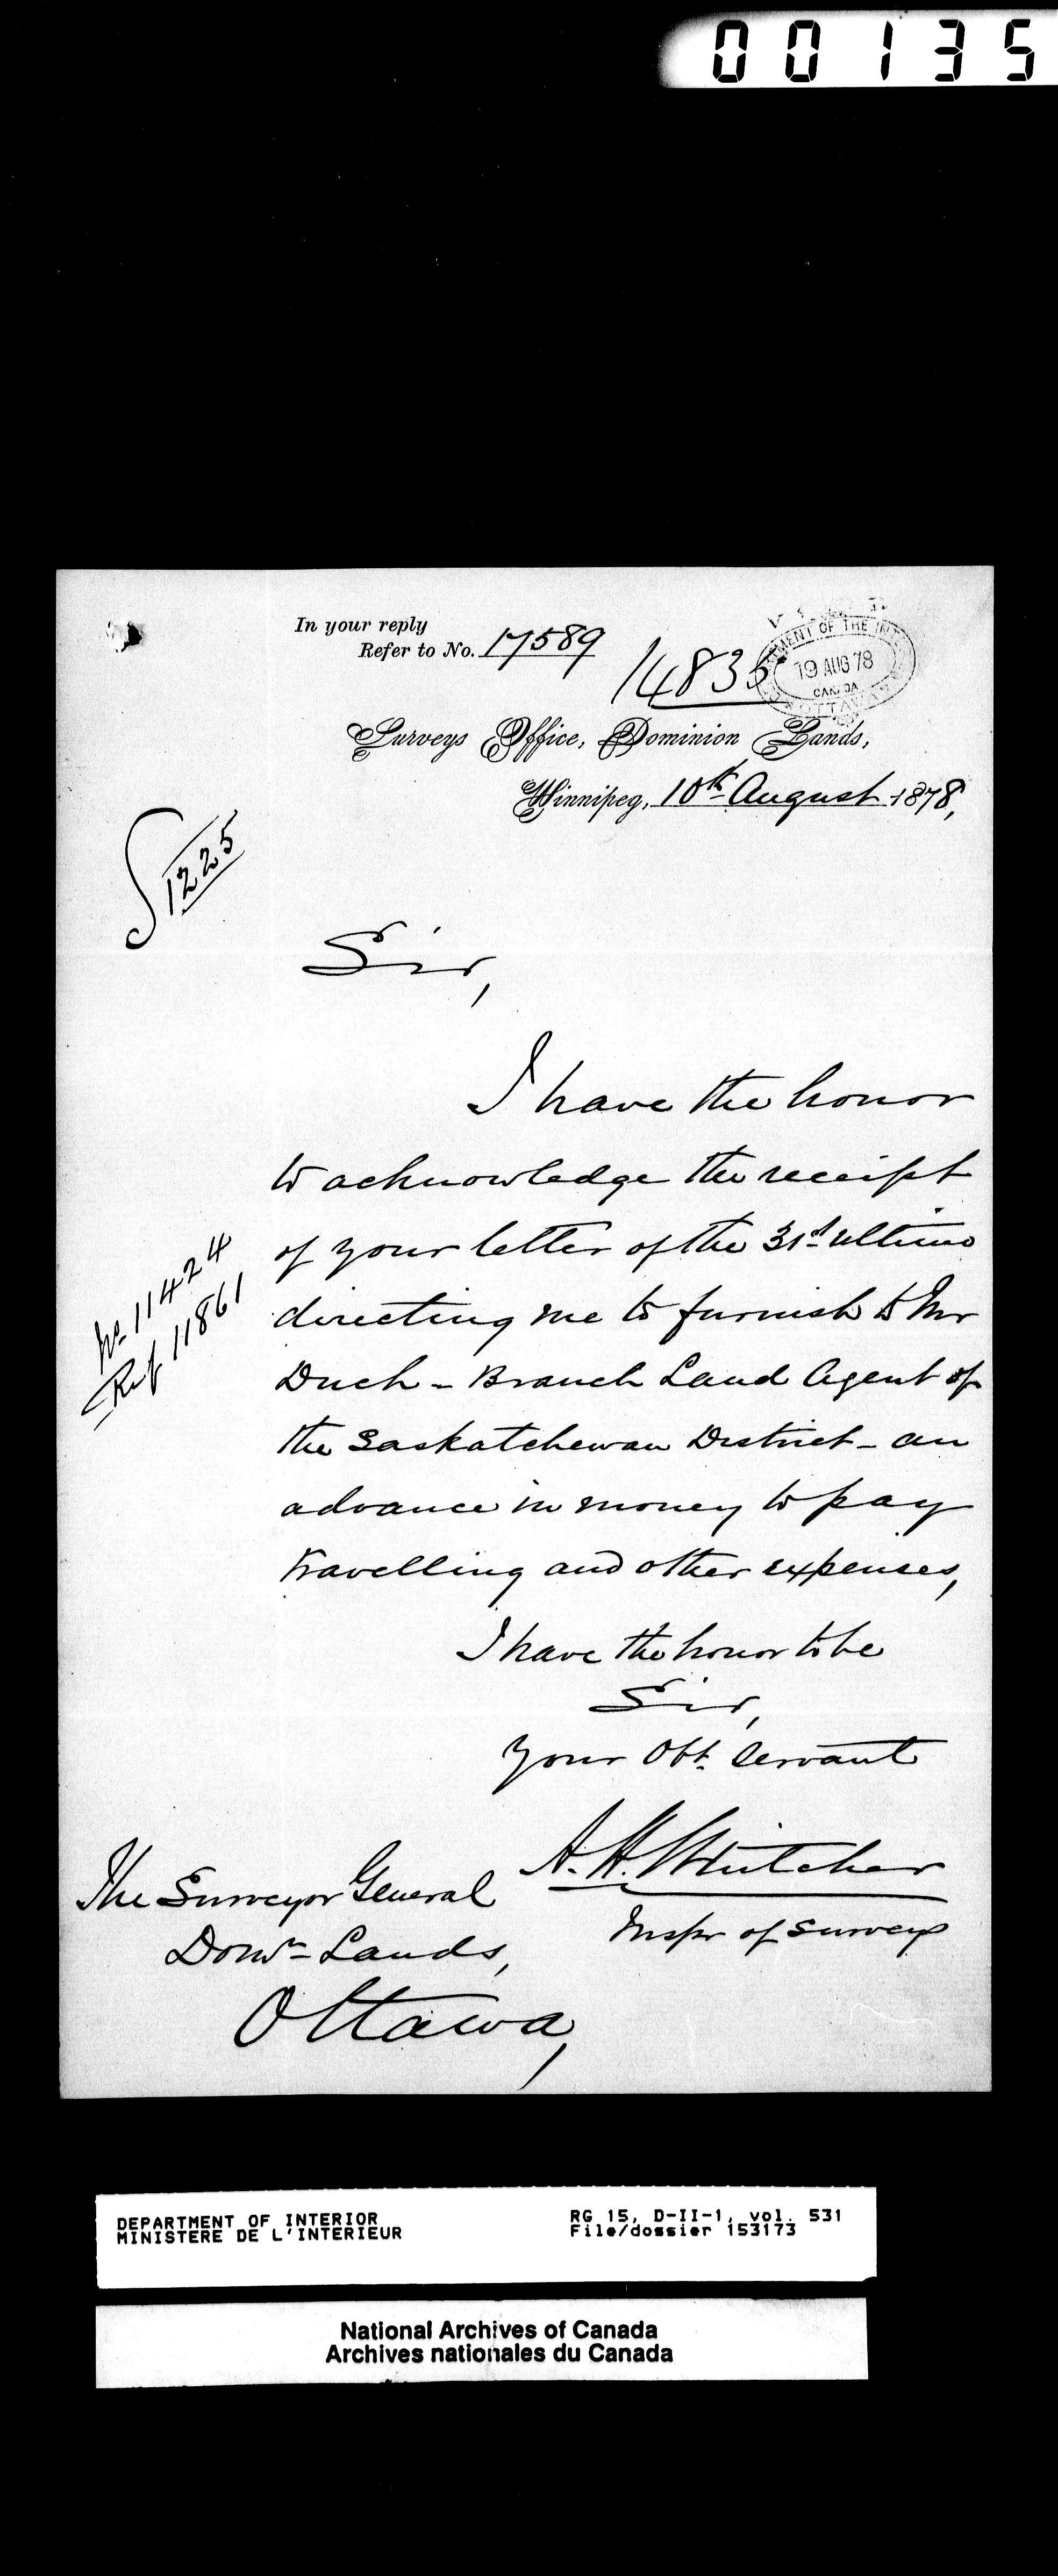 00135
In your reply
Refer to No. 17589
14835
MENT OF THE INT
19 AUG 78
CANADA
OTTAWA
Surveys Office, Dominion Lands,
Winnipeg, 10th August 1878,
S 1225
Sir,
I have the honor
to acknowledge the receipt
of your letter of the 31st ultimo
No 11424
Ref 11861
directing me to furnish to Mr
Duck - Branch Land Agent of
the Saskatchewan District - an
advance in money to pay
travelling and other expenses,
I have the honor to be
Sir,
Your Obt. Servant
A. H. Whitcher
Inspr of Surveys
The Surveyor General
Domn Lands,
Ottawa,
DEPARTMENT OF INTERIOR
MINISTERE DE L'INTERIEUR
RG 15, D-II-1, vol. 531
File/dossier 153173
National Archives of Canada
Archives nationales du Canada